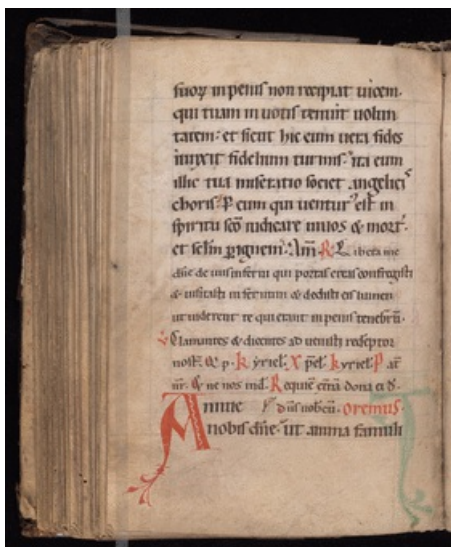 suoꝝ in penis non recipiat uicem.
qui tuam in uotis tenuit uolun
tatem: et sicut hic eum uera fides
iunxit fidelium turmis. ita eum
illic tua miseratio societ angelicis
choris. P eum qui uenturꝰ est in
spiritu sc̄o iudicare uiuos & mort̄.
et sc̄lm ꝑ ignem. Am̄. R Libera me
dn̄e de uiis inferni qui portas ereas confregisti
& uisitasti infernum & dedisti eis lumen
ut uiderent te qui erant in penis tenebrꝝ.
V Clamantes & dicentes aduenisti redēptor
nost̄. Q. p. kyriel. Xpel. kyriel. Pat̄
nr̄. Et ne nos ind. Requiē etn̄ā dona ei d̄.
Anime V dn̄s uobcū. oremus.
A nobis dn̄e. ut anima famuli